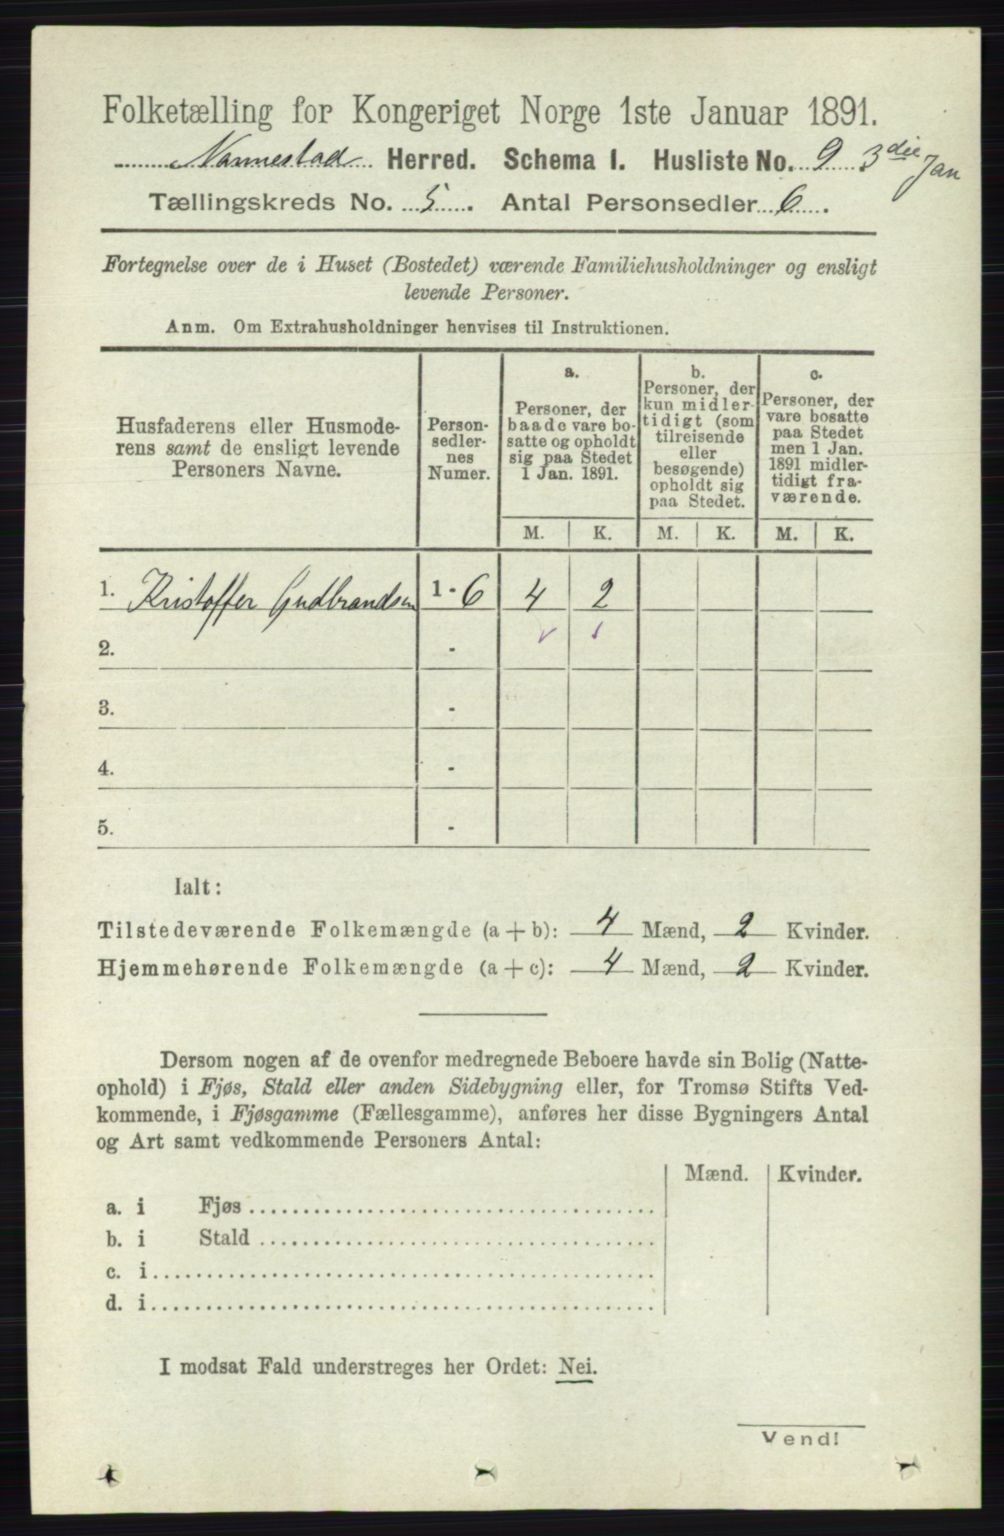 Folketælling for Kongeriget Norge 1ste Januar 1891.
Nannestad Herred. Schema I. Husliste No. 9 3die Jan
Tællingskreds No. 5. Antal Personsedler 6.
Fortegnelse over de i Huset (Bostedet) værende Familiehusholdninger og ensligt
levende Personer.
Anm. Om Extrahusholdninger henvises til Instruktionen.
Husfaderens eller Husmode-
rens samt de ensligt levende
Personers Navne.
Person-
sedler-
nes
Numer.
a.
Personer, der
baade vare bo-
satte og opholdt
sig paa Stedet
1 Jan. 1891.
b.
Personer, der
kun midler-
tidigt (som
tilreisende
eller
besøgende)
opholdt sig
paa Stedet.
c.
Personer, der
vare bosatte
paa Stedet
men 1 Jan.
1891 midler-
tidigt fra-
værende.
M. K. M. K. M. K.
1. Kristoffer Gudbrandsen 1 - 6 4 2
2. -
3. -
4. -
5. -
Ialt:
Tilstedeværende Folkemængde (a + b): 4 Mænd, 2 Kvinder.
Hjemmehørende Folkemængde (a + c): 4 Mænd, 2 Kvinder.
Dersom nogen af de ovenfor medregnede Beboere havde sin Bolig (Natte-
ophold) i Fjøs, Stald eller anden Sidebygning eller, for Tromsø Stifts Ved-
kommende, i Fjøsgamme (Fællesgamme), anføres her disse Bygningers Antal
og Art samt vedkommende Personers Antal:
Mænd. Kvinder.
a. i Fjøs
b. i Stald
c. i
d. i
I modsat Fald understreges her Ordet: Nei.
Vend!